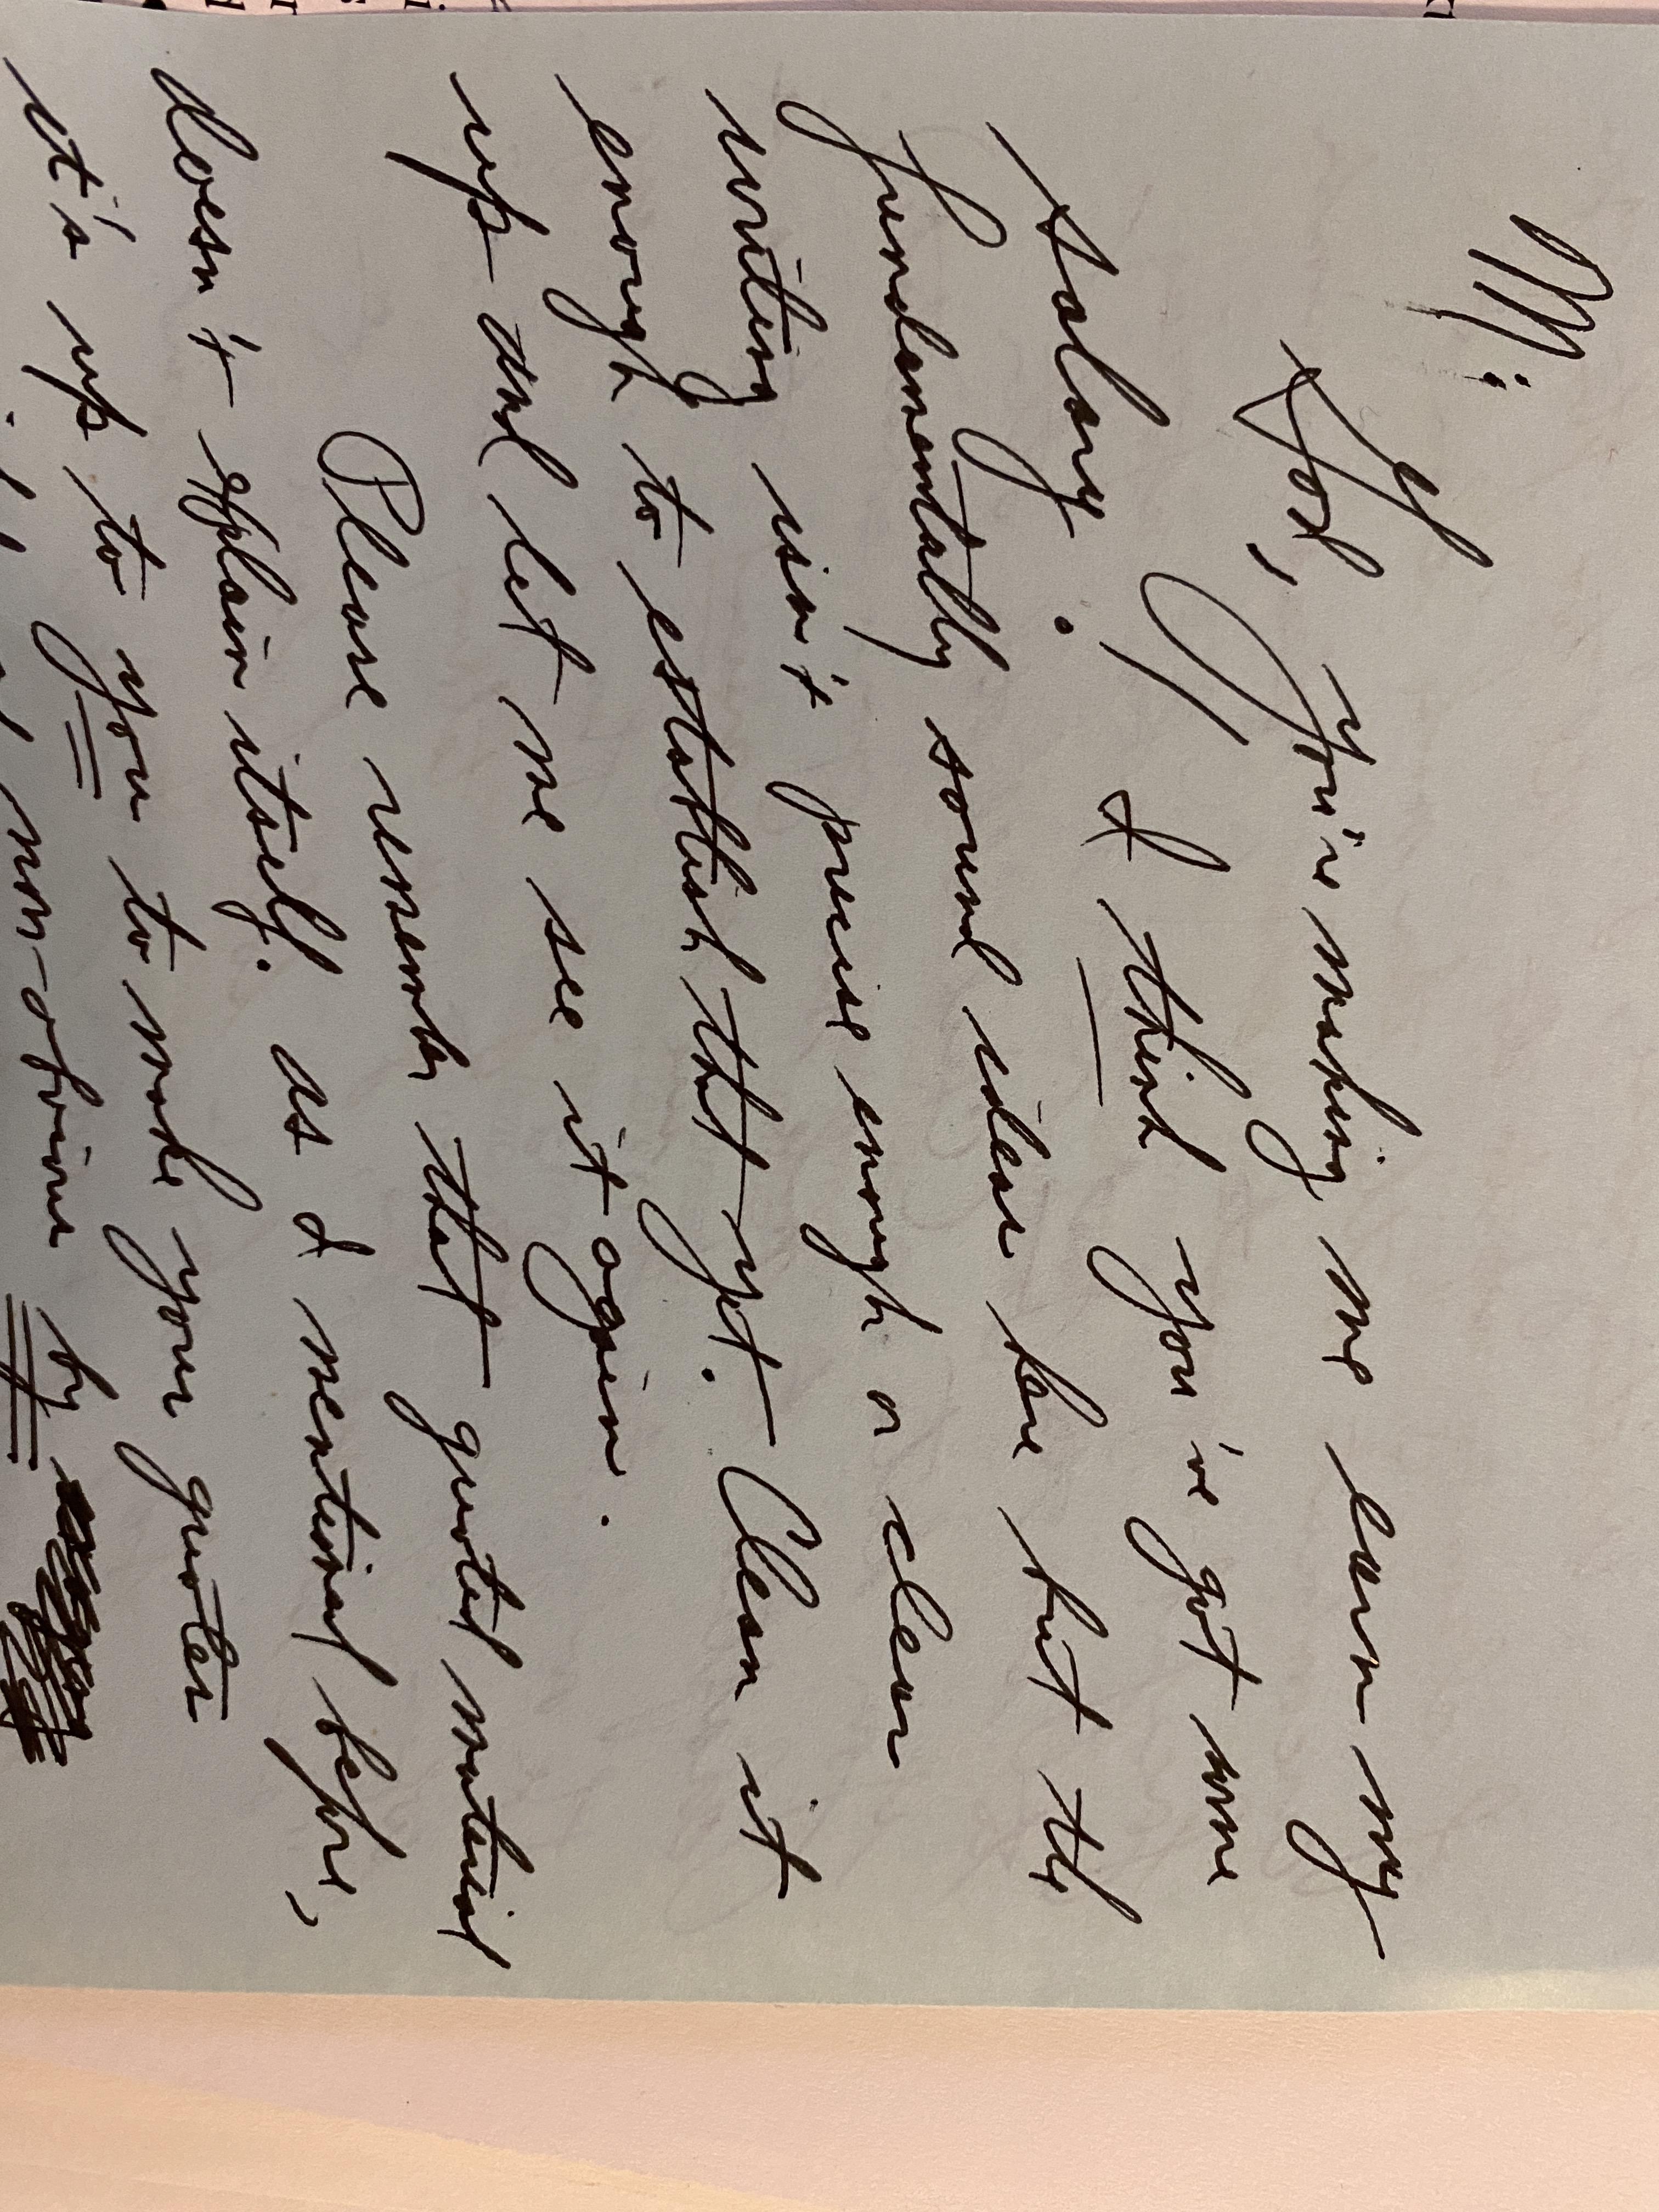 M:
God, you're making me earn my
salary. I think you've got some
fundamentally sound ideas here but the
writing isn't precise enough or clear
enough to establish that yet. Clean it
up and let me see it again.
Please remember that quoted material
doesn't explain itself. As I mentioned before,
it's up to you to make your quotes
non-obvious by